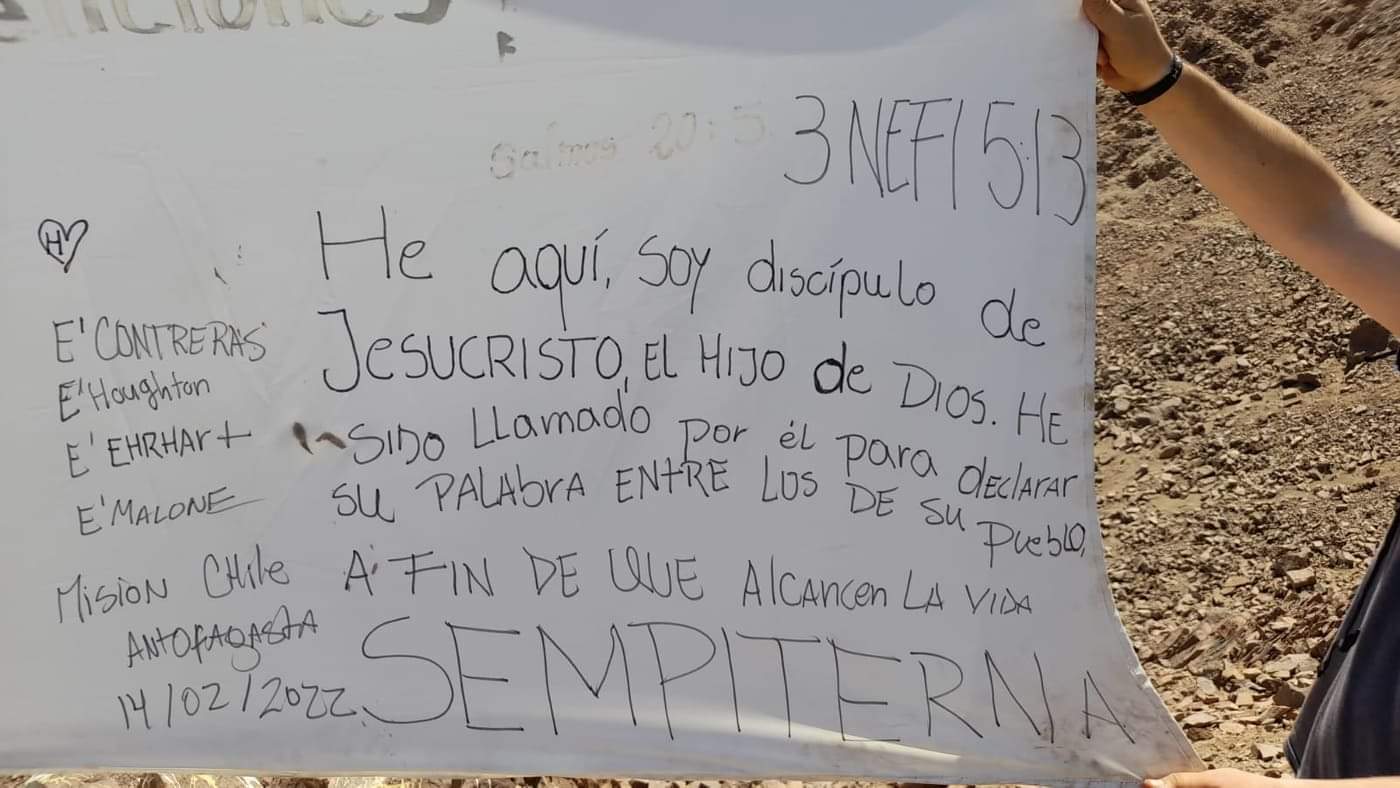 Salmos 20:5
3 NEFI 5:13
He aquí, soy discípulo de
JESUCRISTO, EL HIJO de DIOS. HE
SIDO LLamado por él para declarar
SU PALAbrA ENtRE LOS DE SU
Pueblo,
A FIN DE QUE AlCAncen LA VIDA
SEMPITERNA
H
E' CONTRERAS
E' Houghton
E' EHRHArt
E' MALONE
MISION CHile
ANTOfAgASTA
14/02/2022